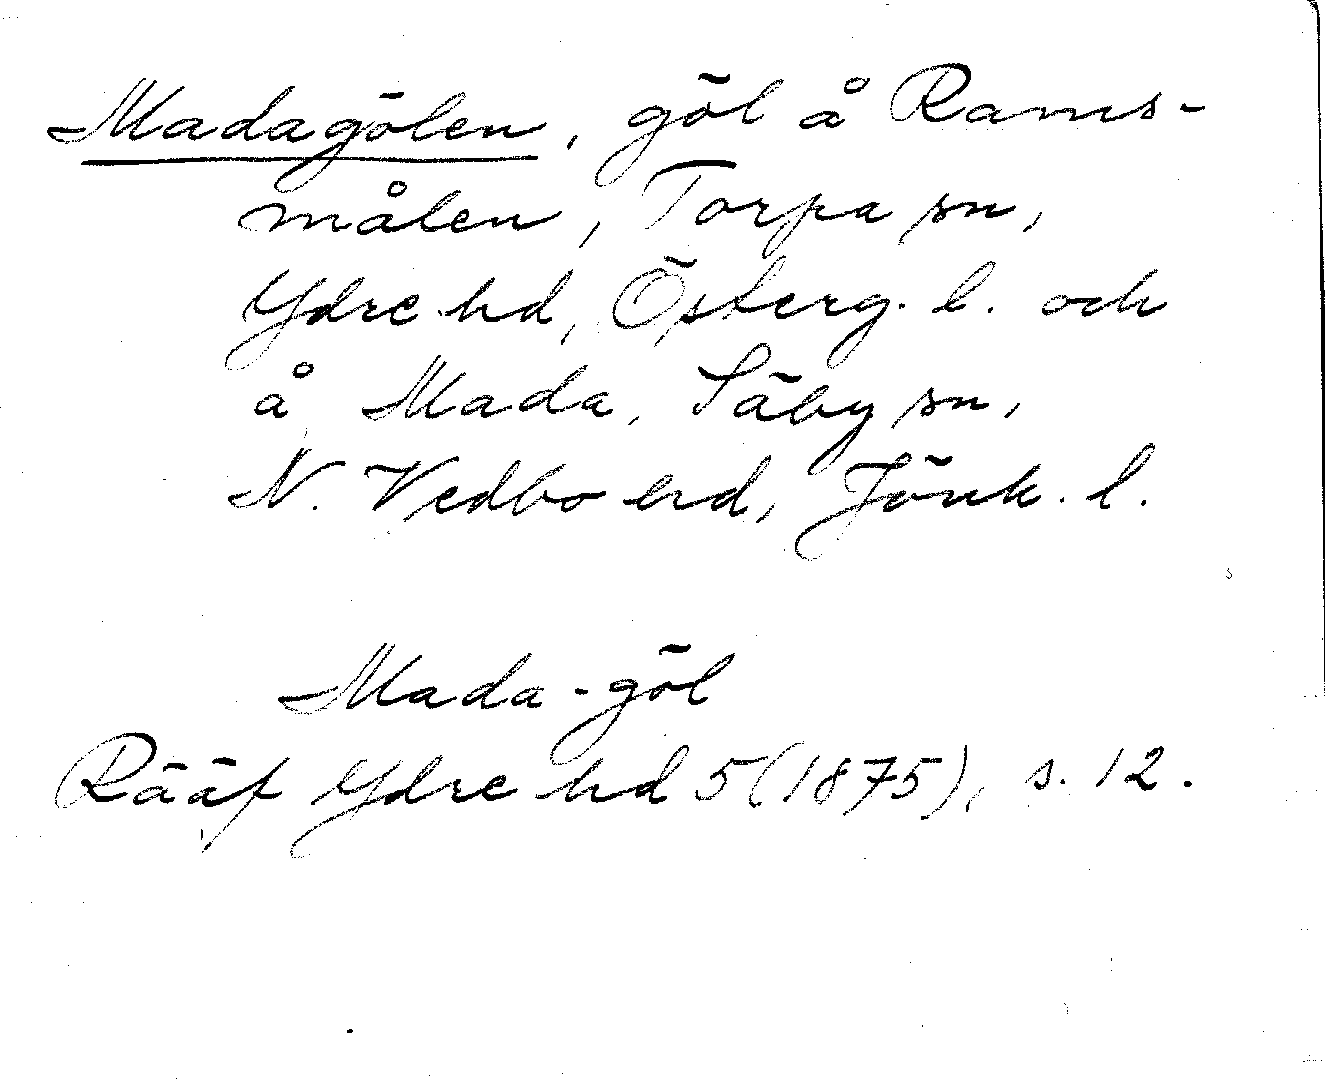 Madagölen, göl å Rams-
målen, Torpa sn,
Ydre hd, Österg. l. och
å Mada, Säby sn,
N. Vedbo hd, Jönk. l.
Mada-göl
Rääf Ydre hd 5 (1875), s. 12.